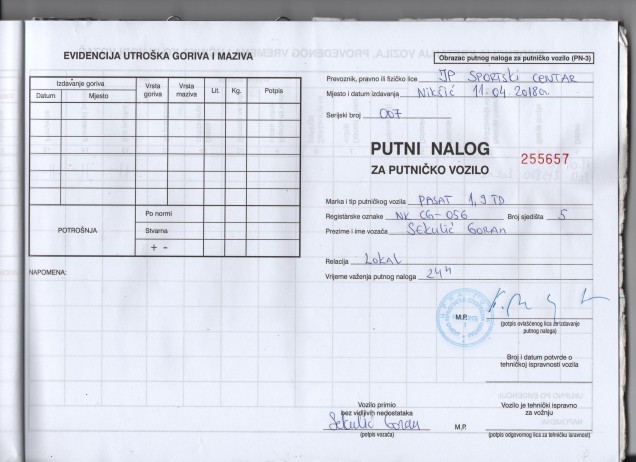 EVIDENCIJA UTROŠKA GORIVA I MAZIVA
Izdavanje goriva
Datum Mjesto
Vrsta goriva
Vrsta maziva
Lit.
Kg.
Potpis
POTROŠNJA
Po normi
Stvarna
+ -
NAPOMENA:
Obrazac putnog naloga za putničko vozilo (PN-3)
Prevoznik, pravno ili fizičko lice JP SPORTSKI CENTAR
Mjesto i datum izdavanja Nikšić 11.04.2018
Serijski broj 007
PUTNI NALOG
ZA PUTNIČKO VOZILO
255657
Marka i tip putničkog vozila PASAT 1,9 TD
Registarske oznake NK CG-056 Broj sjedišta 5
Prezime i ime vozača SEKULIĆ GORAN
Relacija LOKAL
Vrijeme važenja putnog naloga 24 h
M.P.
(potpis ovlašćenog lica za izdavanje
putnog naloga)
Broj i datum potvrde o
tehničkoj ispravnosti vozila
Vozilo primio
bez vidljivih nedostataka
Sekulić Goran
(potpis vozača)
M.P.
Vozilo je tehnički ispravno
za vožnju
(potpis odgovornog lica za tehničku isravnost)